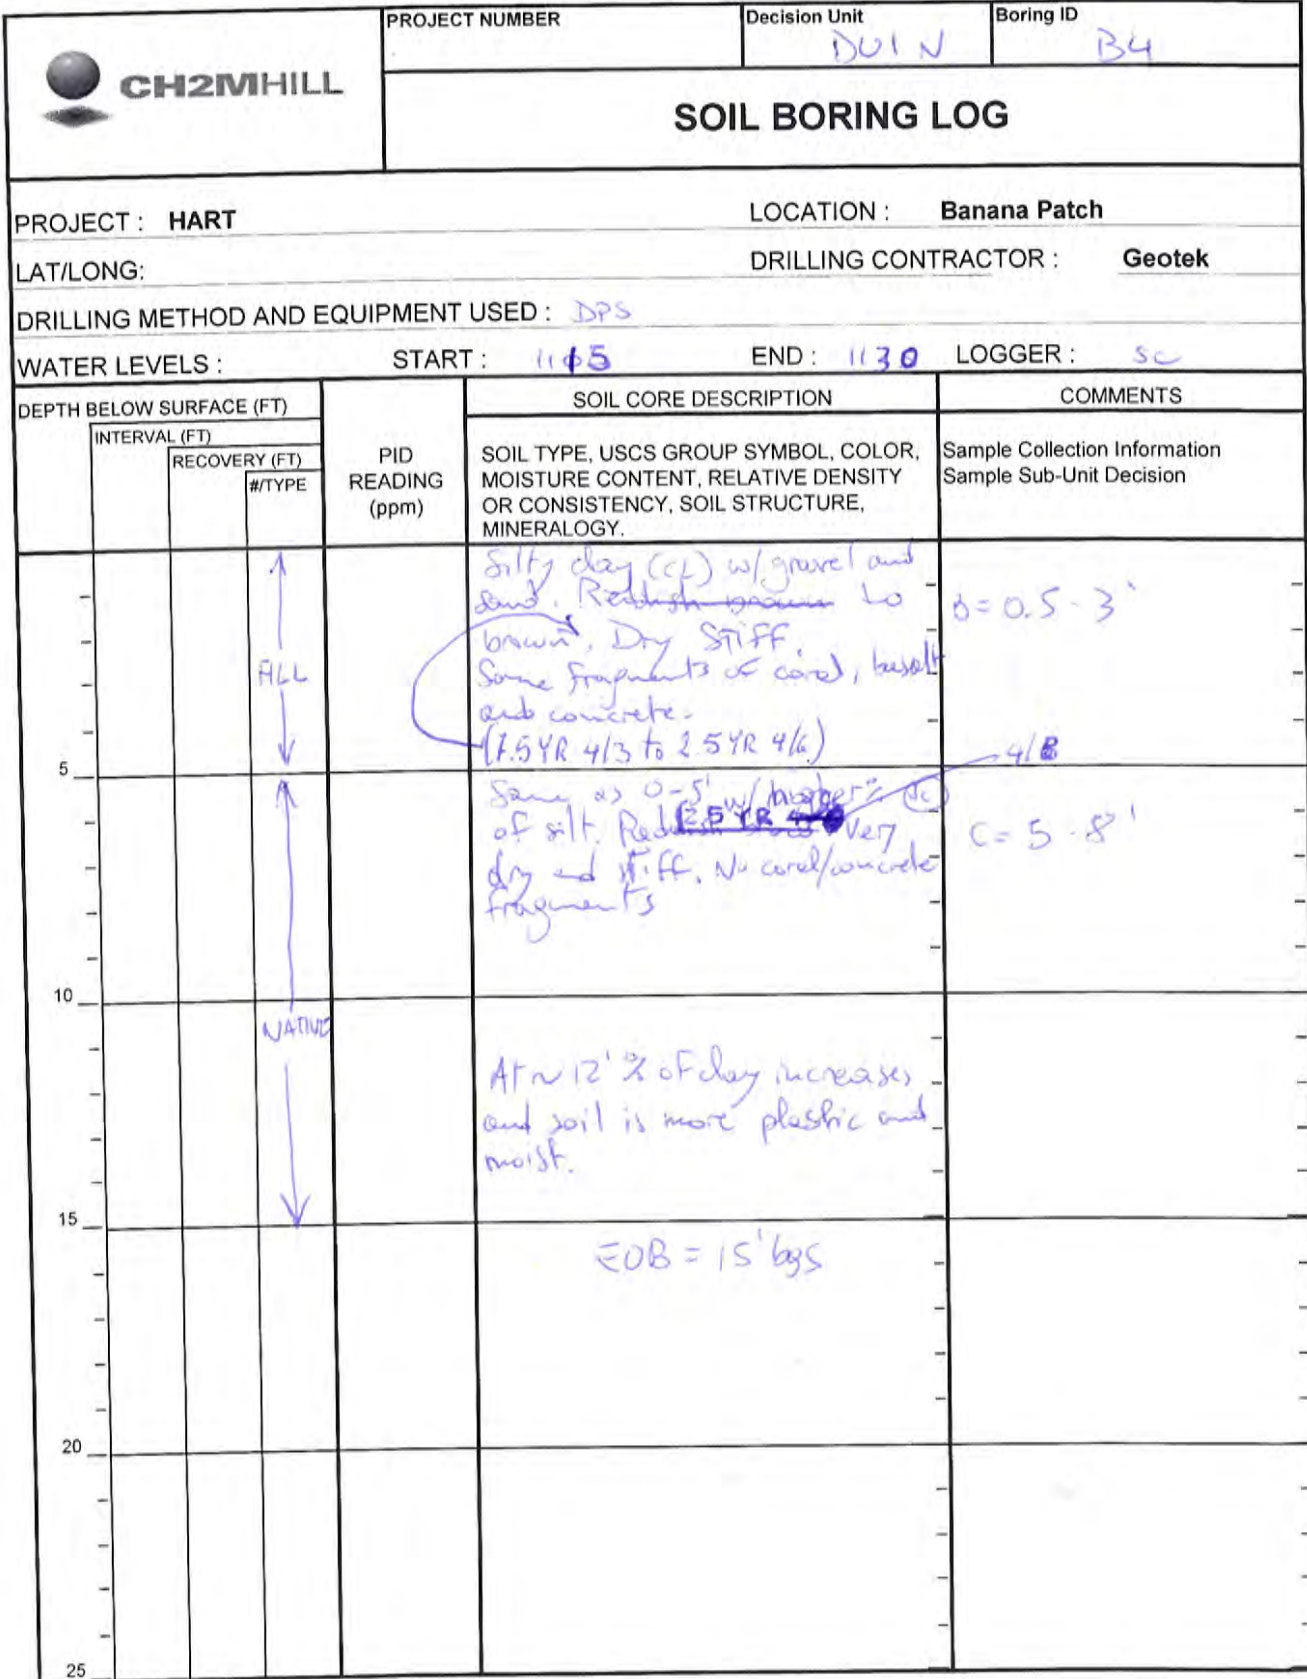 CH2MHILL
PROJECT NUMBER
Decision Unit
DU1 N
Boring ID
B4
SOIL BORING LOG
PROJECT : HART
LOCATION : Banana Patch
LAT/LONG:
DRILLING CONTRACTOR : Geotek
DRILLING METHOD AND EQUIPMENT USED : DPS
WATER LEVELS : START : 1115 END : 1130 LOGGER : SC
DEPTH BELOW SURFACE (FT)
INTERVAL (FT)
RECOVERY (FT)
#/TYPE
PID
READING
(ppm)
SOIL CORE DESCRIPTION
SOIL TYPE, USCS GROUP SYMBOL, COLOR,
MOISTURE CONTENT, RELATIVE DENSITY
OR CONSISTENCY, SOIL STRUCTURE,
MINERALOGY.
COMMENTS
Sample Collection Information
Sample Sub-Unit Decision
Silty clay (CL) w/ gravel and
sand. Reddish brown to
brown. Dry Stiff.
Some fragments of coral, basalt
and concrete.
(7.5YR 4/3 to 2.5YR 4/6)
b = 0.5 - 3'
FILL
5
Same as 0-5' w/ higher % (SC)
of silt. (2.5 YR Very
dry and stiff. No coral/concrete
fragments
C = 5 - 8'
10
NATIVE
At ~ 12' % of clay increases
and soil is more plastic and
moist.
15
EOB = 15' bgs
20
25